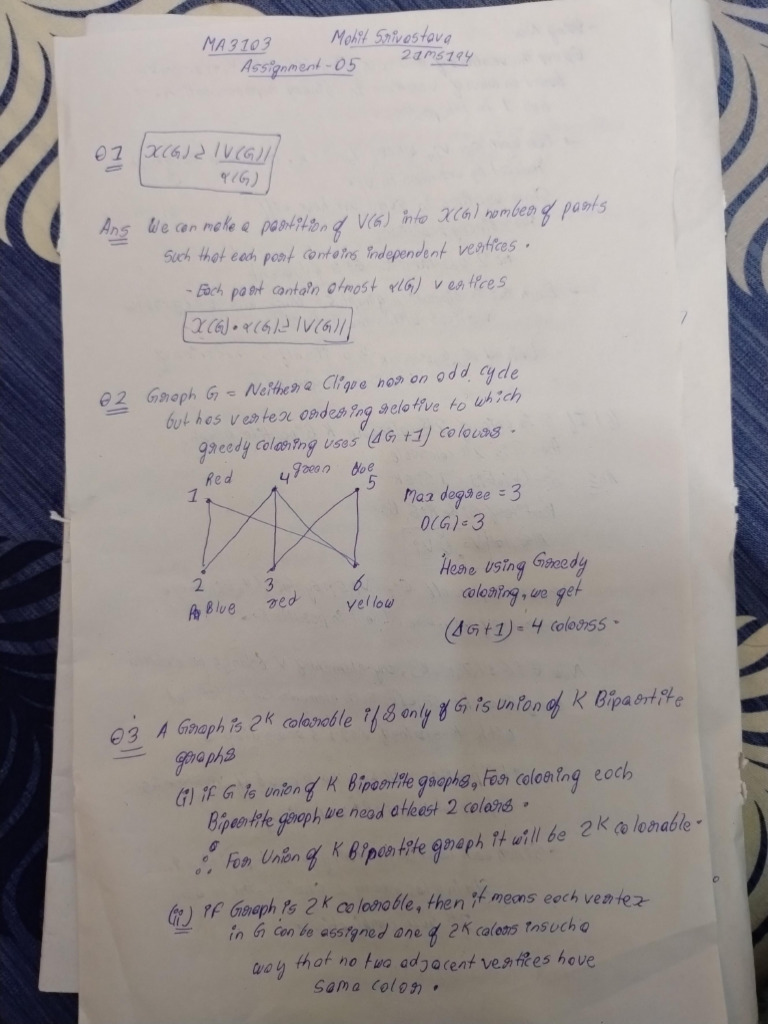 MA3103 Mohit Srivastava
Assignment-05 20MS194
Q1 X(G) ≥ |V(G)|
α(G)
Ans We can make a partition of V(G) into X(G) number of parts
such that each part contains independent vertices.
- Each part contain atmost α(G) vertices
X(G)·α(G) ≥ |V(G)|
Q2 Graph G = Neither a Clique nor an odd cycle
but has vertex ordering relative to which
greedy coloring uses (ΔG+1) colours.
Red 4 green blue
1 5
Max degree = 3
D(G)=3
Here using Greedy
coloring, we get
(ΔG+1) = 4 colorss.
2 3 6
Blue red yellow
Q3 A Graph is 2K colorable if & only if G is union of K Bipartite
graphs
(i) if G is union of K Bipartite graphs, For coloring each
Bipartite graph we need atleast 2 colors.
∴ For Union of K Bipartite graph it will be 2K colorable.
(ii) if Graph is 2K colorable, then it means each vertex
in G can be assigned one of 2K colors in such a
way that no two adjacent vertices have
sama color.